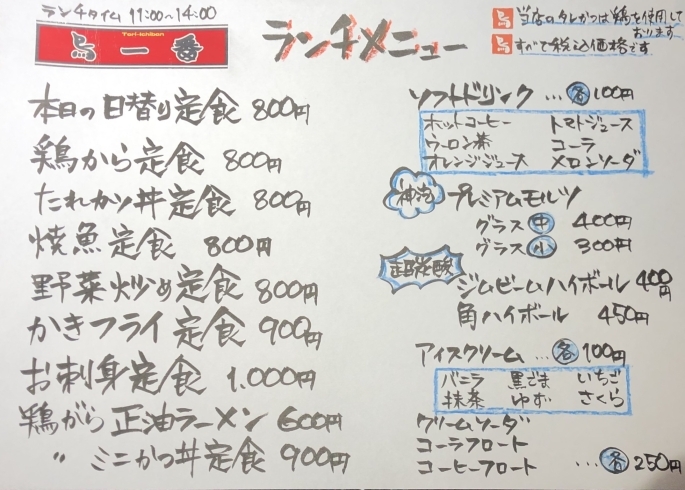 ランチタイム 11:00~14:00
Tori-ichiban
鳥一番
ランチメニュー
鳥 当店のタレかつは鶏を使用して
おります
鳥 すべて税込価格です
本日の日替り定食 800円
鶏から定食 800円
たれカツ丼定食 800円
焼魚定食 800円
野菜炒め定食 800円
かきフライ定食 900円
お刺身定食 1.000円
鶏がら正油ラーメン 600円
〃 ミニかつ丼定食 900円
ソフトドリンク …各100円
ホットコーヒー トマトジュース
ウーロン茶 コーラ
オレンジジュース メロンソーダ
神泡 プレミアムモルツ
グラス中 400円
グラス小 300円
超炭酸
ジムビームハイボール 400円
角ハイボール 450円
アイスクリーム …各100円
バニラ 黒ごま いちご
抹茶 ゆず さくら
クリームソーダ
コーラフロート
コーヒーフロート …各250円